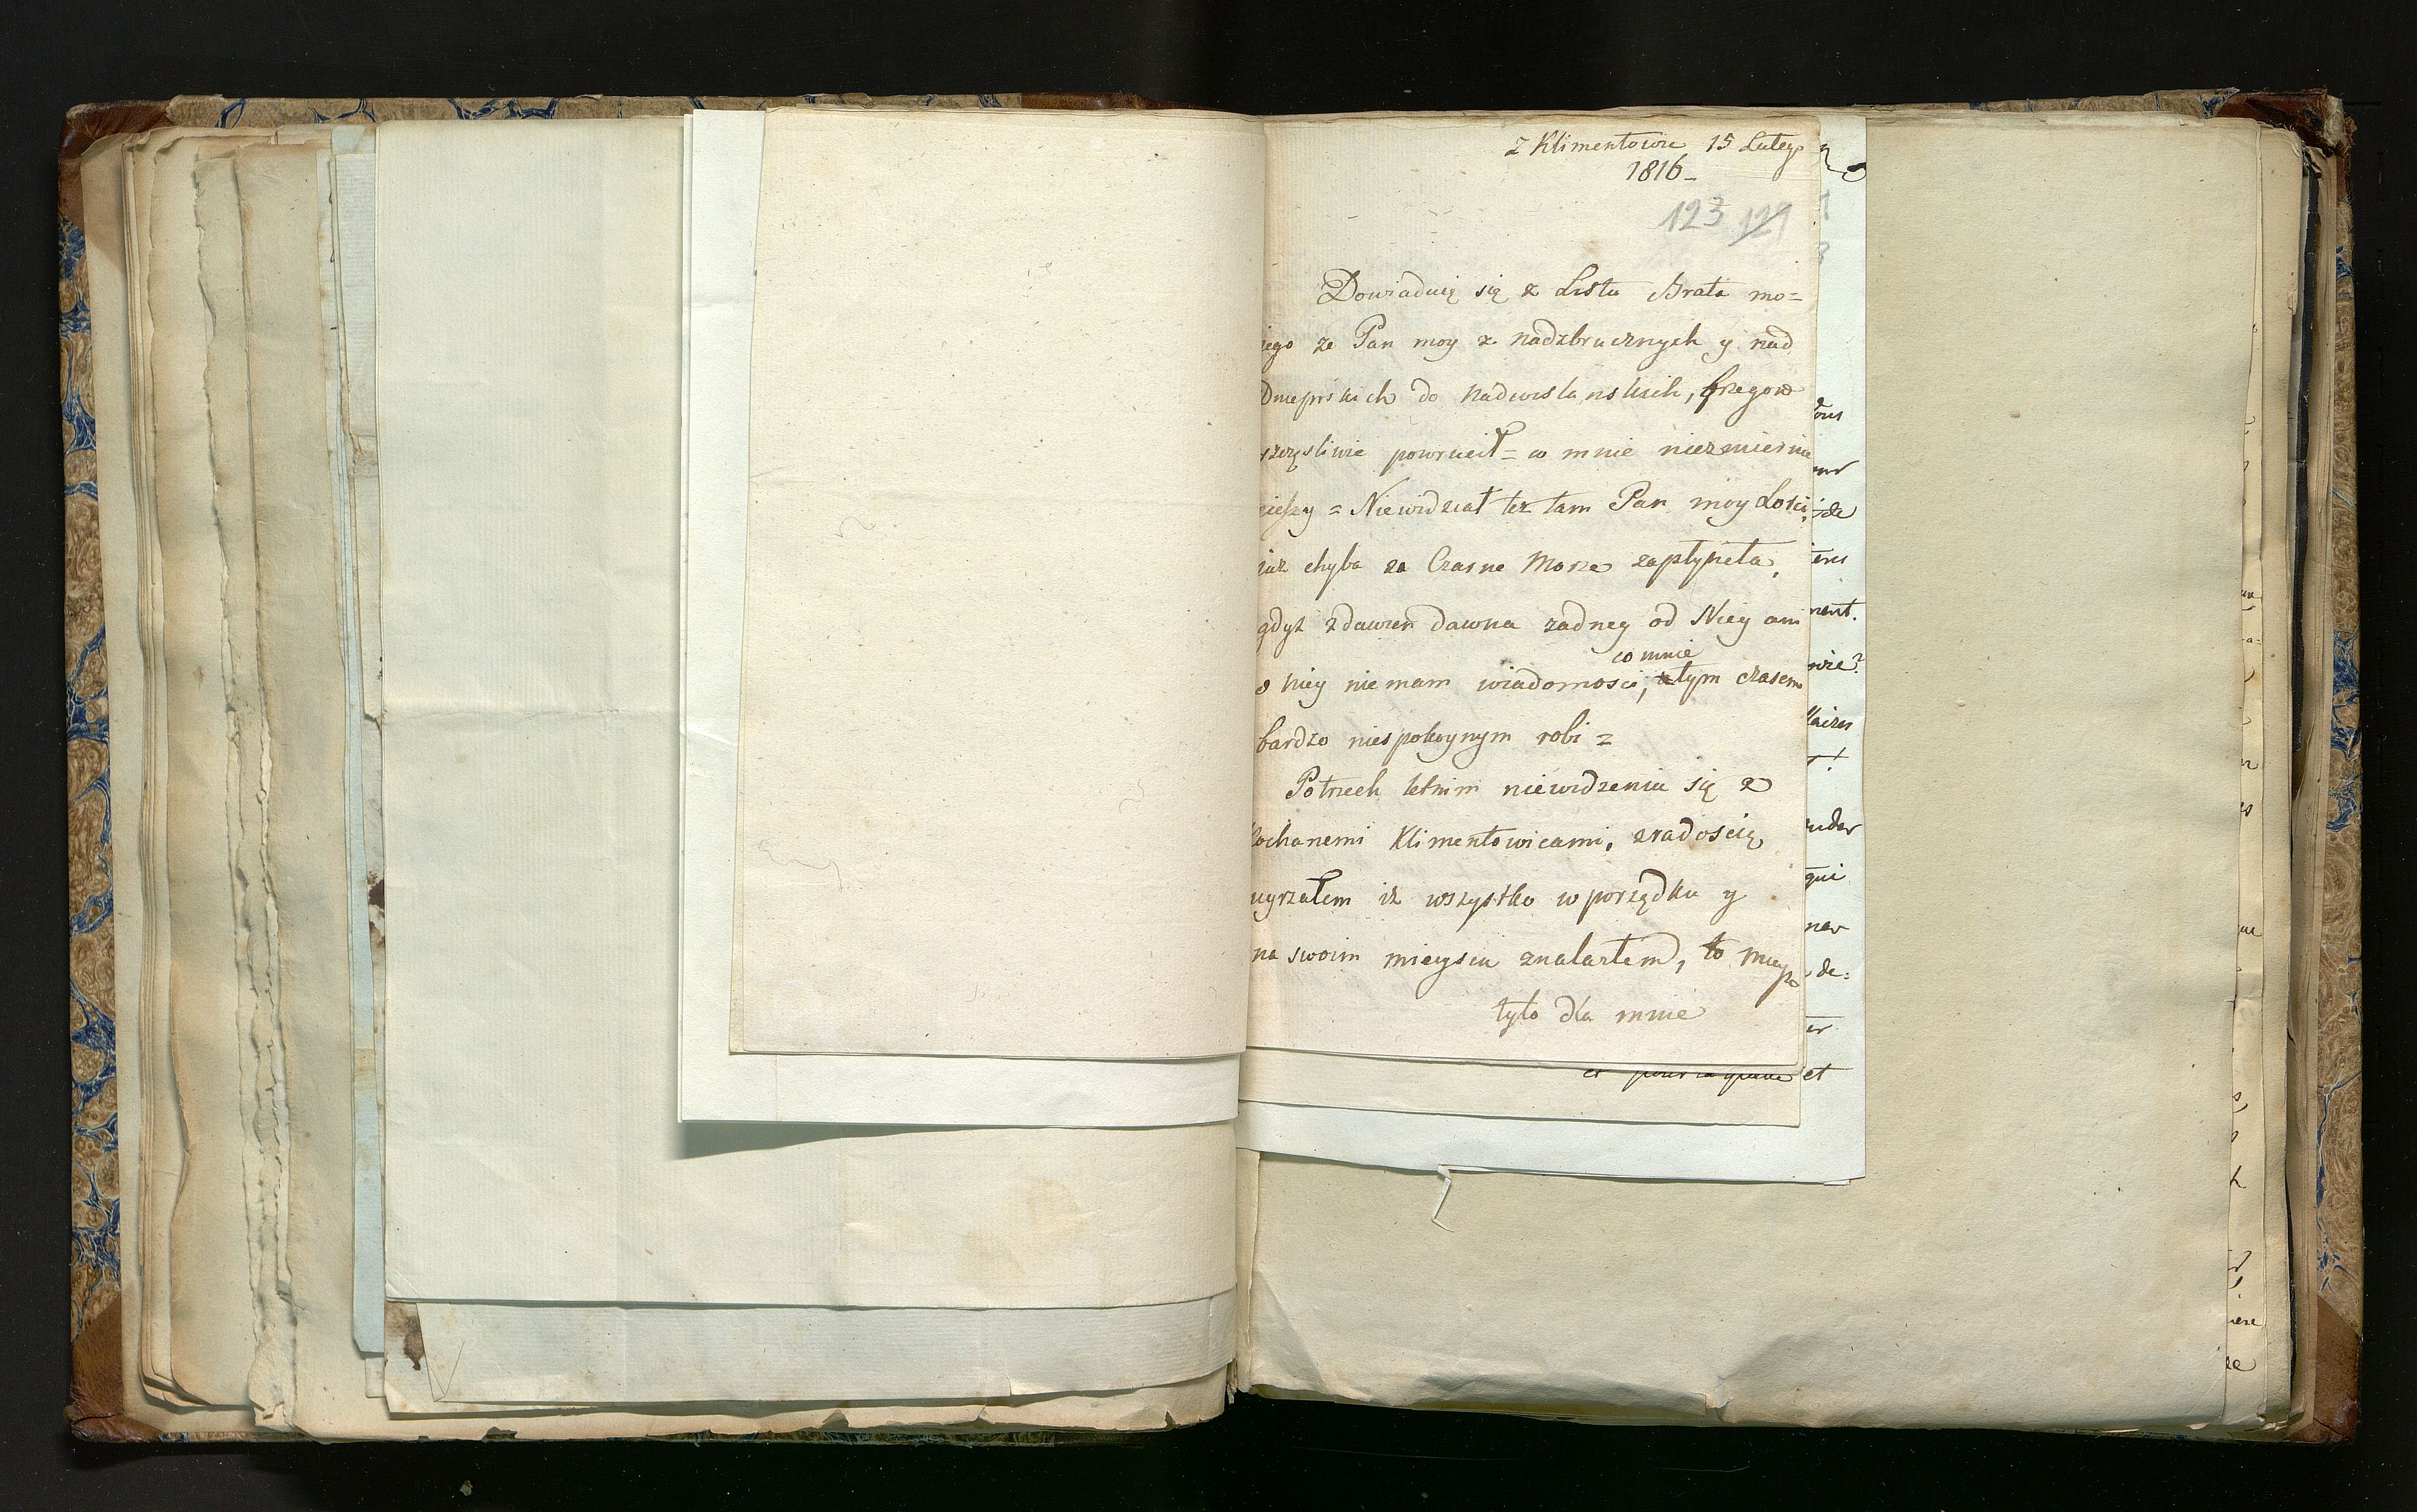 z Klimentowic 15 Lutego
1816_
123 121
Dowiaduię się z Listu Brata mo=
iego ze Pan moy z nadzbrucznych y nad
Dnieprskich do nadwislanskich, brzegow
szczęsliwie powrucił = co mnie niezmiernie
cieszy = Niewidział tez tam Pan moy Losci,
iuz chyba za Czarne Morze zapłyneła,
gdyż zdawien dawna zadney od Niey ani
o niey niemam wiadomosci, co mnie tym czasem
bardzo niespokoynym robi =
Potrzech letnim niewidzeniu się z
Kochanemi Klimentowicami, zradoscią
uyrzałem iż wszystko w porządku y
na swoim mieyscu znalazłem, to
tylo dla mnie
et